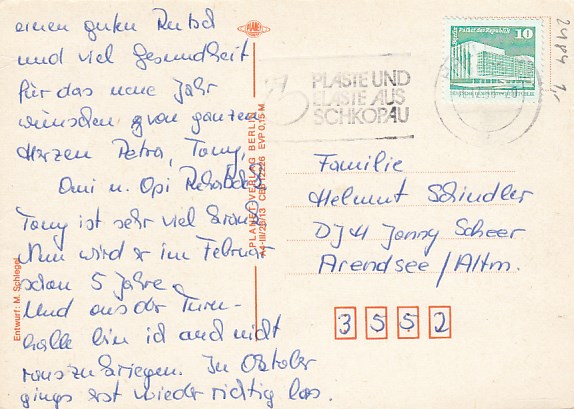 einen guten Rutsch
und viel Gesundheit
für das neue Jahr
wünschen von ganzem
Herzen Petra, Tomy,
Omi u. Opi
Tomy ist sehr viel
Nun wird er im Februar
schon 5 Jahre.
Und aus der Turn-
halle bin ich auch nicht
rauszukriegen. Im Oktober
gings erst wieder richtig los.
Entwurf: M. Schlegel
PLANET
PLANET-VERLAG BERLIN
A4-III/26/13 EVP 0,15 M
PLASTE UND
ELASTE AUS
SCHKOPAU
Palast der Republik
10
2484 1,-
Familie
Helmut Schindler
DJH Jonny Scheer
Arendsee/Altm.
3552